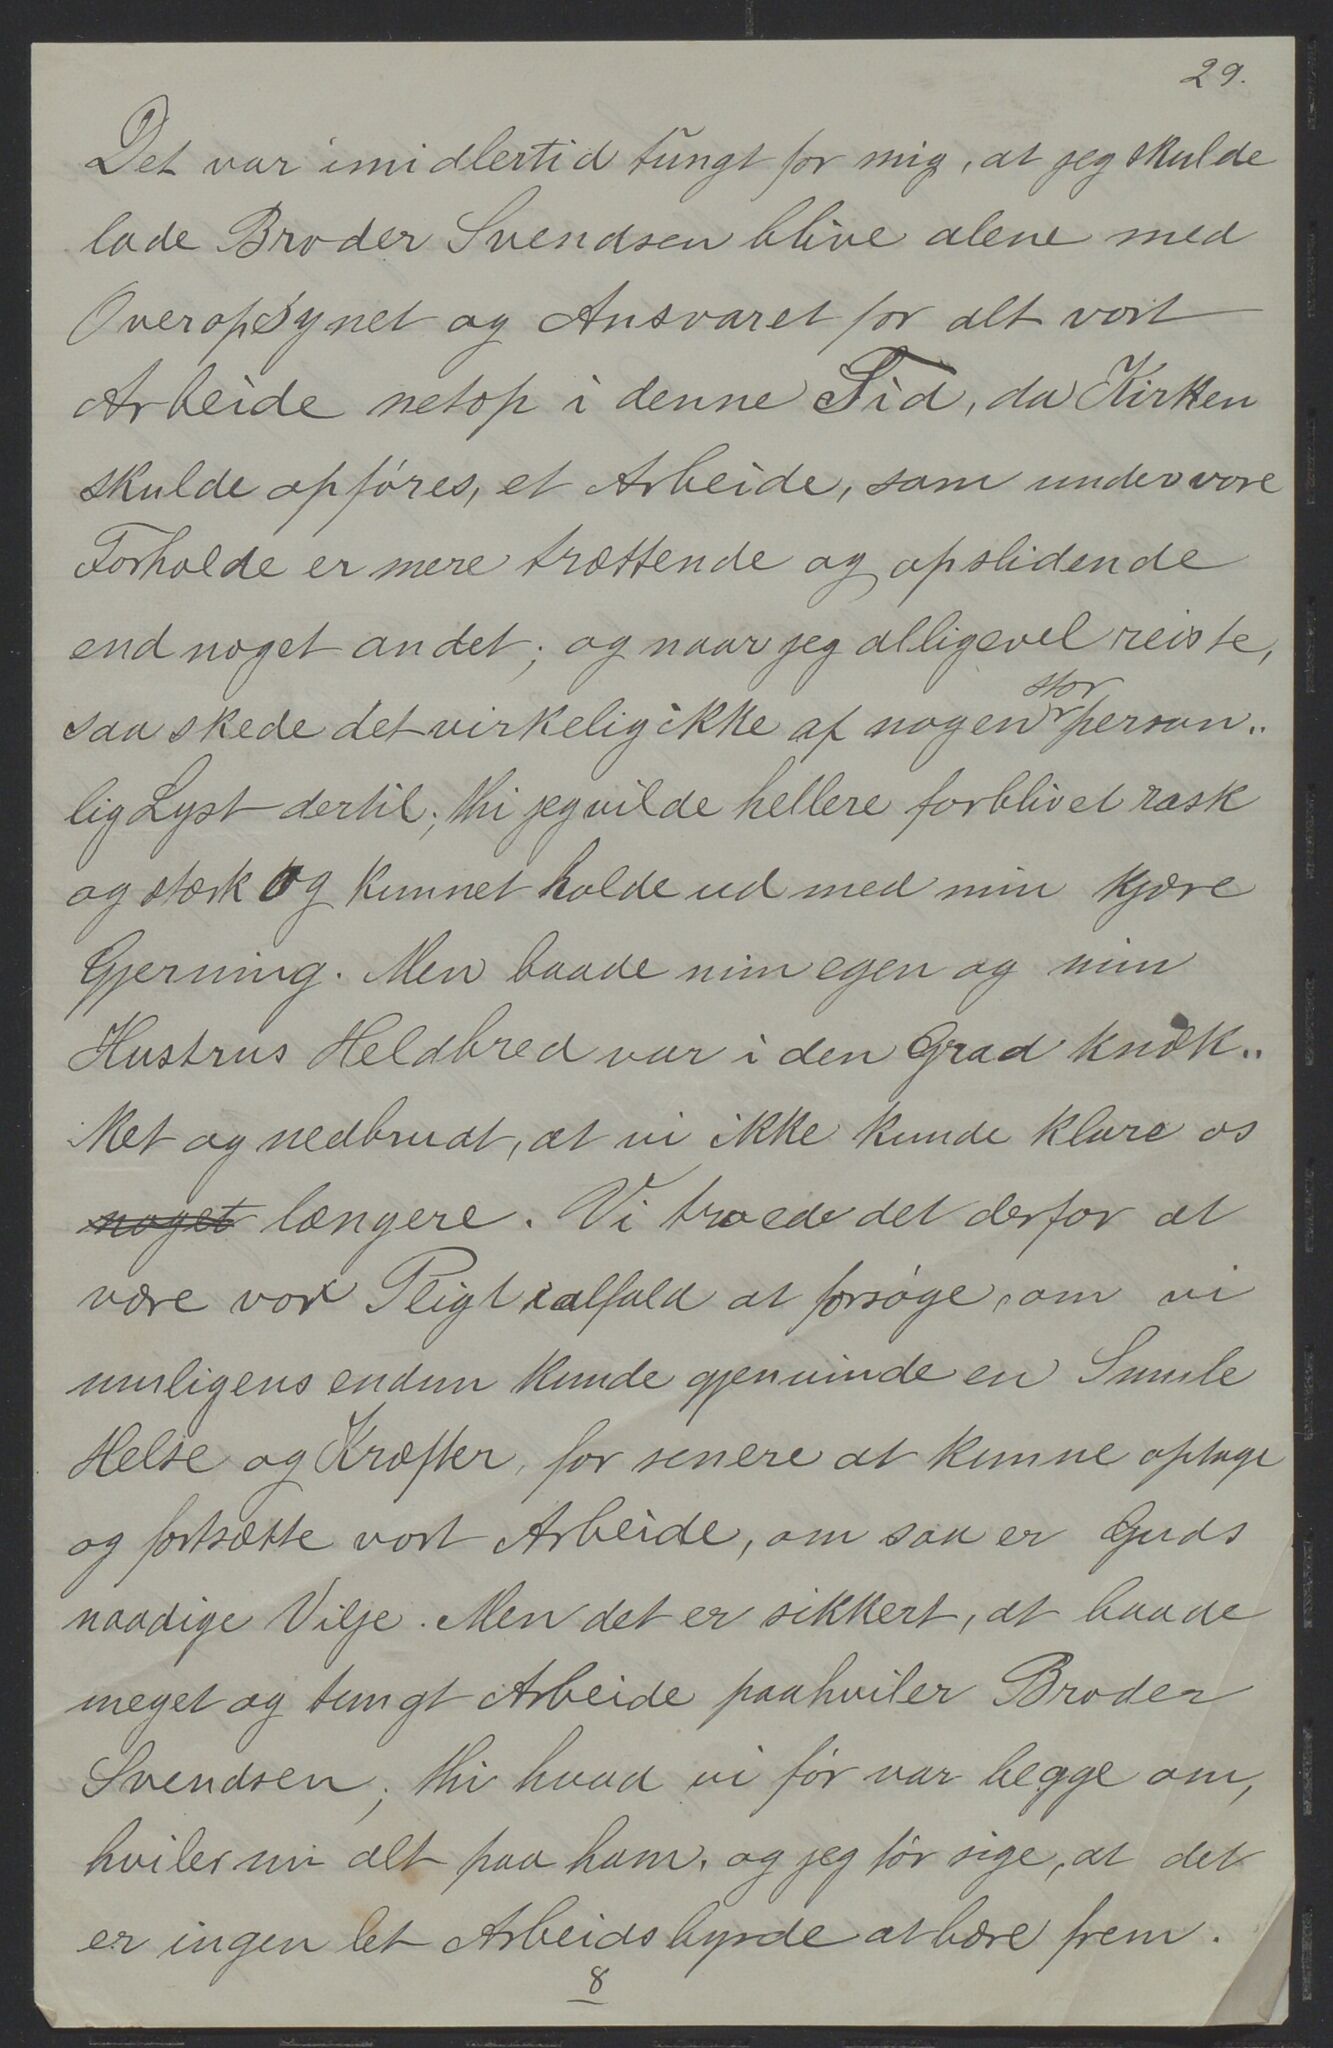 29.
Det var imidlertid tungt for mig, at jeg skulde
lade Broder Svendsen blive alene med
Overopsynet og Ansvaret for alt vort
Arbeide netop i denne Tid, da Kirken
skulde opføres, et Arbeide, som under vore
Forholde er mere trættende og opslidende
end noget andet; og naar jeg alligevel reiste,
saa skede det virkelig ikke af nogen stor person„
lig Lyst dertil; thi jeg vilde hellere forblivet rask
og stærk og kunnet holde ud med min kjære
Gjerning. Men baade min egen og min
Hustrus Heldbred var i den Grad knæk„
ket og nedbrudt, at vi ikke kunde klare os
noget længere. Vi troede det derfor at
være vor Pligt ialfald at forsøge, om vi
muligens endnu kunde gjenvinde en Smule
Helse og Kræfter, for senere at kunne optage
og fortsætte vort Arbeide, om saa er Guds
naadige Vilje. Men det er sikkert, at baade
meget og tungt Arbeide paahviler Broder
Svendsen; thi hvad vi før var begge om,
hviler nu alt paa ham, og jeg tør sige, at det
er ingen let Arbeidsbyrde at bære frem.
8